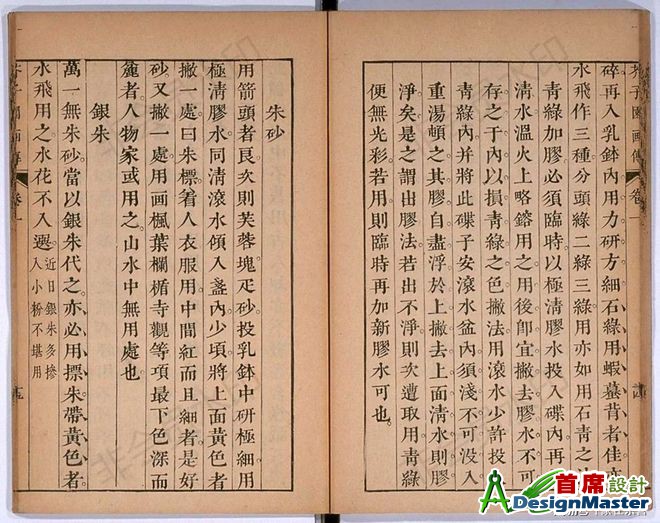 碎再入乳鉢內用力研方細石綠用蝦蟇背者佳亦
水飛作三種分頭綠二綠三綠用亦如用石青之法
青綠加膠必須臨時以極清膠水投入碟內再加
清水溫火上略鎔用之用後卽宜撇去膠水不可
存之于內以損青綠之色撇法用滾水少許投入
青綠內并將此碟子安滾水盆內須淺不可没入
重湯頓之其膠自盡浮於上撇去上面清水則膠
淨矣是之謂出膠法若出不淨則次遭取用青綠
便無光彩若用則臨時再加新膠水可也
芥子園畫傳
卷一
朱砂
用箭頭者良次則芙蓉塊疋砂投乳鉢中研極細用
極清膠水同清滾水傾入盞內少頃將上面黃色者
撇一處曰朱標着人衣服用中間紅而且細者是好
砂又撇一處用画楓葉欄楯寺觀等項最下色深而
麄者人物家或用之山水中無用處也
銀朱
萬一無朱砂當以銀朱代之亦必用摽朱帶黃色者
水飛用之水花不入選近日銀朱多摻
入小粉不堪用
卷一
首席設計
DesignMaster